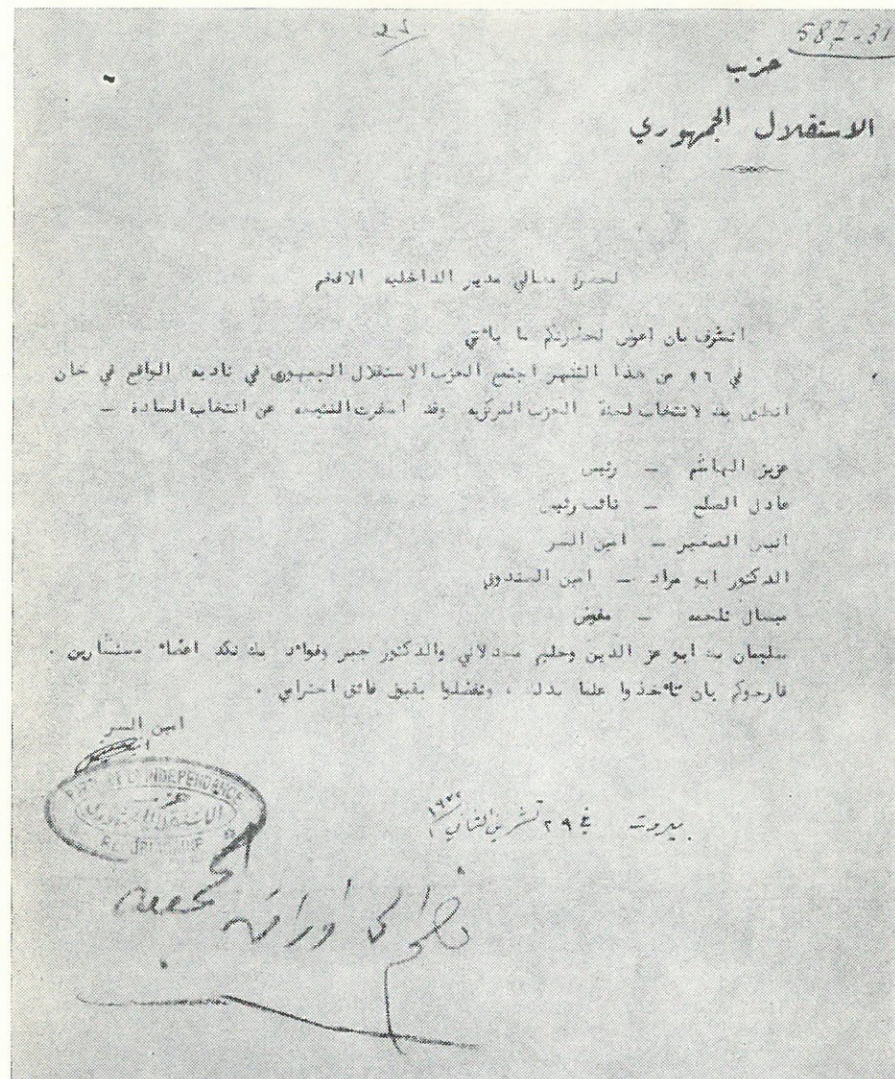 587-31
حزب
الاستقلال الجمهوري
لحضرة معالي مدير الداخلية الافخم
اتشرف بان اعرض لحضرتكم ما يأتي
في ٢٦ من هذا الشهر اجتمع الحزب الاستقلال الجمهوري في ناديه الواقع في خان
انطون بك لانتخاب لجنة الحزب المركزيه وقد اسفرت النتيجه عن انتخاب السادة –
عزيز الهاشم – رئيس
عادل الصلح – نائب رئيس
انيس الصغير – امين السر
الدكتور ابو مراد – امين الصندوق
ميشال تلحمه – مفوض
سليمان بك ابو عز الدين وحليم مجدلاني والدكتور جبر وفوائد بك نكد اعضاء مستشارين .
فارجوكم بان تأخذوا علما بذلك ، وتفضلوا بقبول فائق احترامي .
امين السر
PARTI DE L'INDEPENDANCE
حزب
الاستقلال الجمهوري
REPUBLICAINE
بيروت في ٢٩ تشرين الثاني
تضم الى اوراق الجمعية